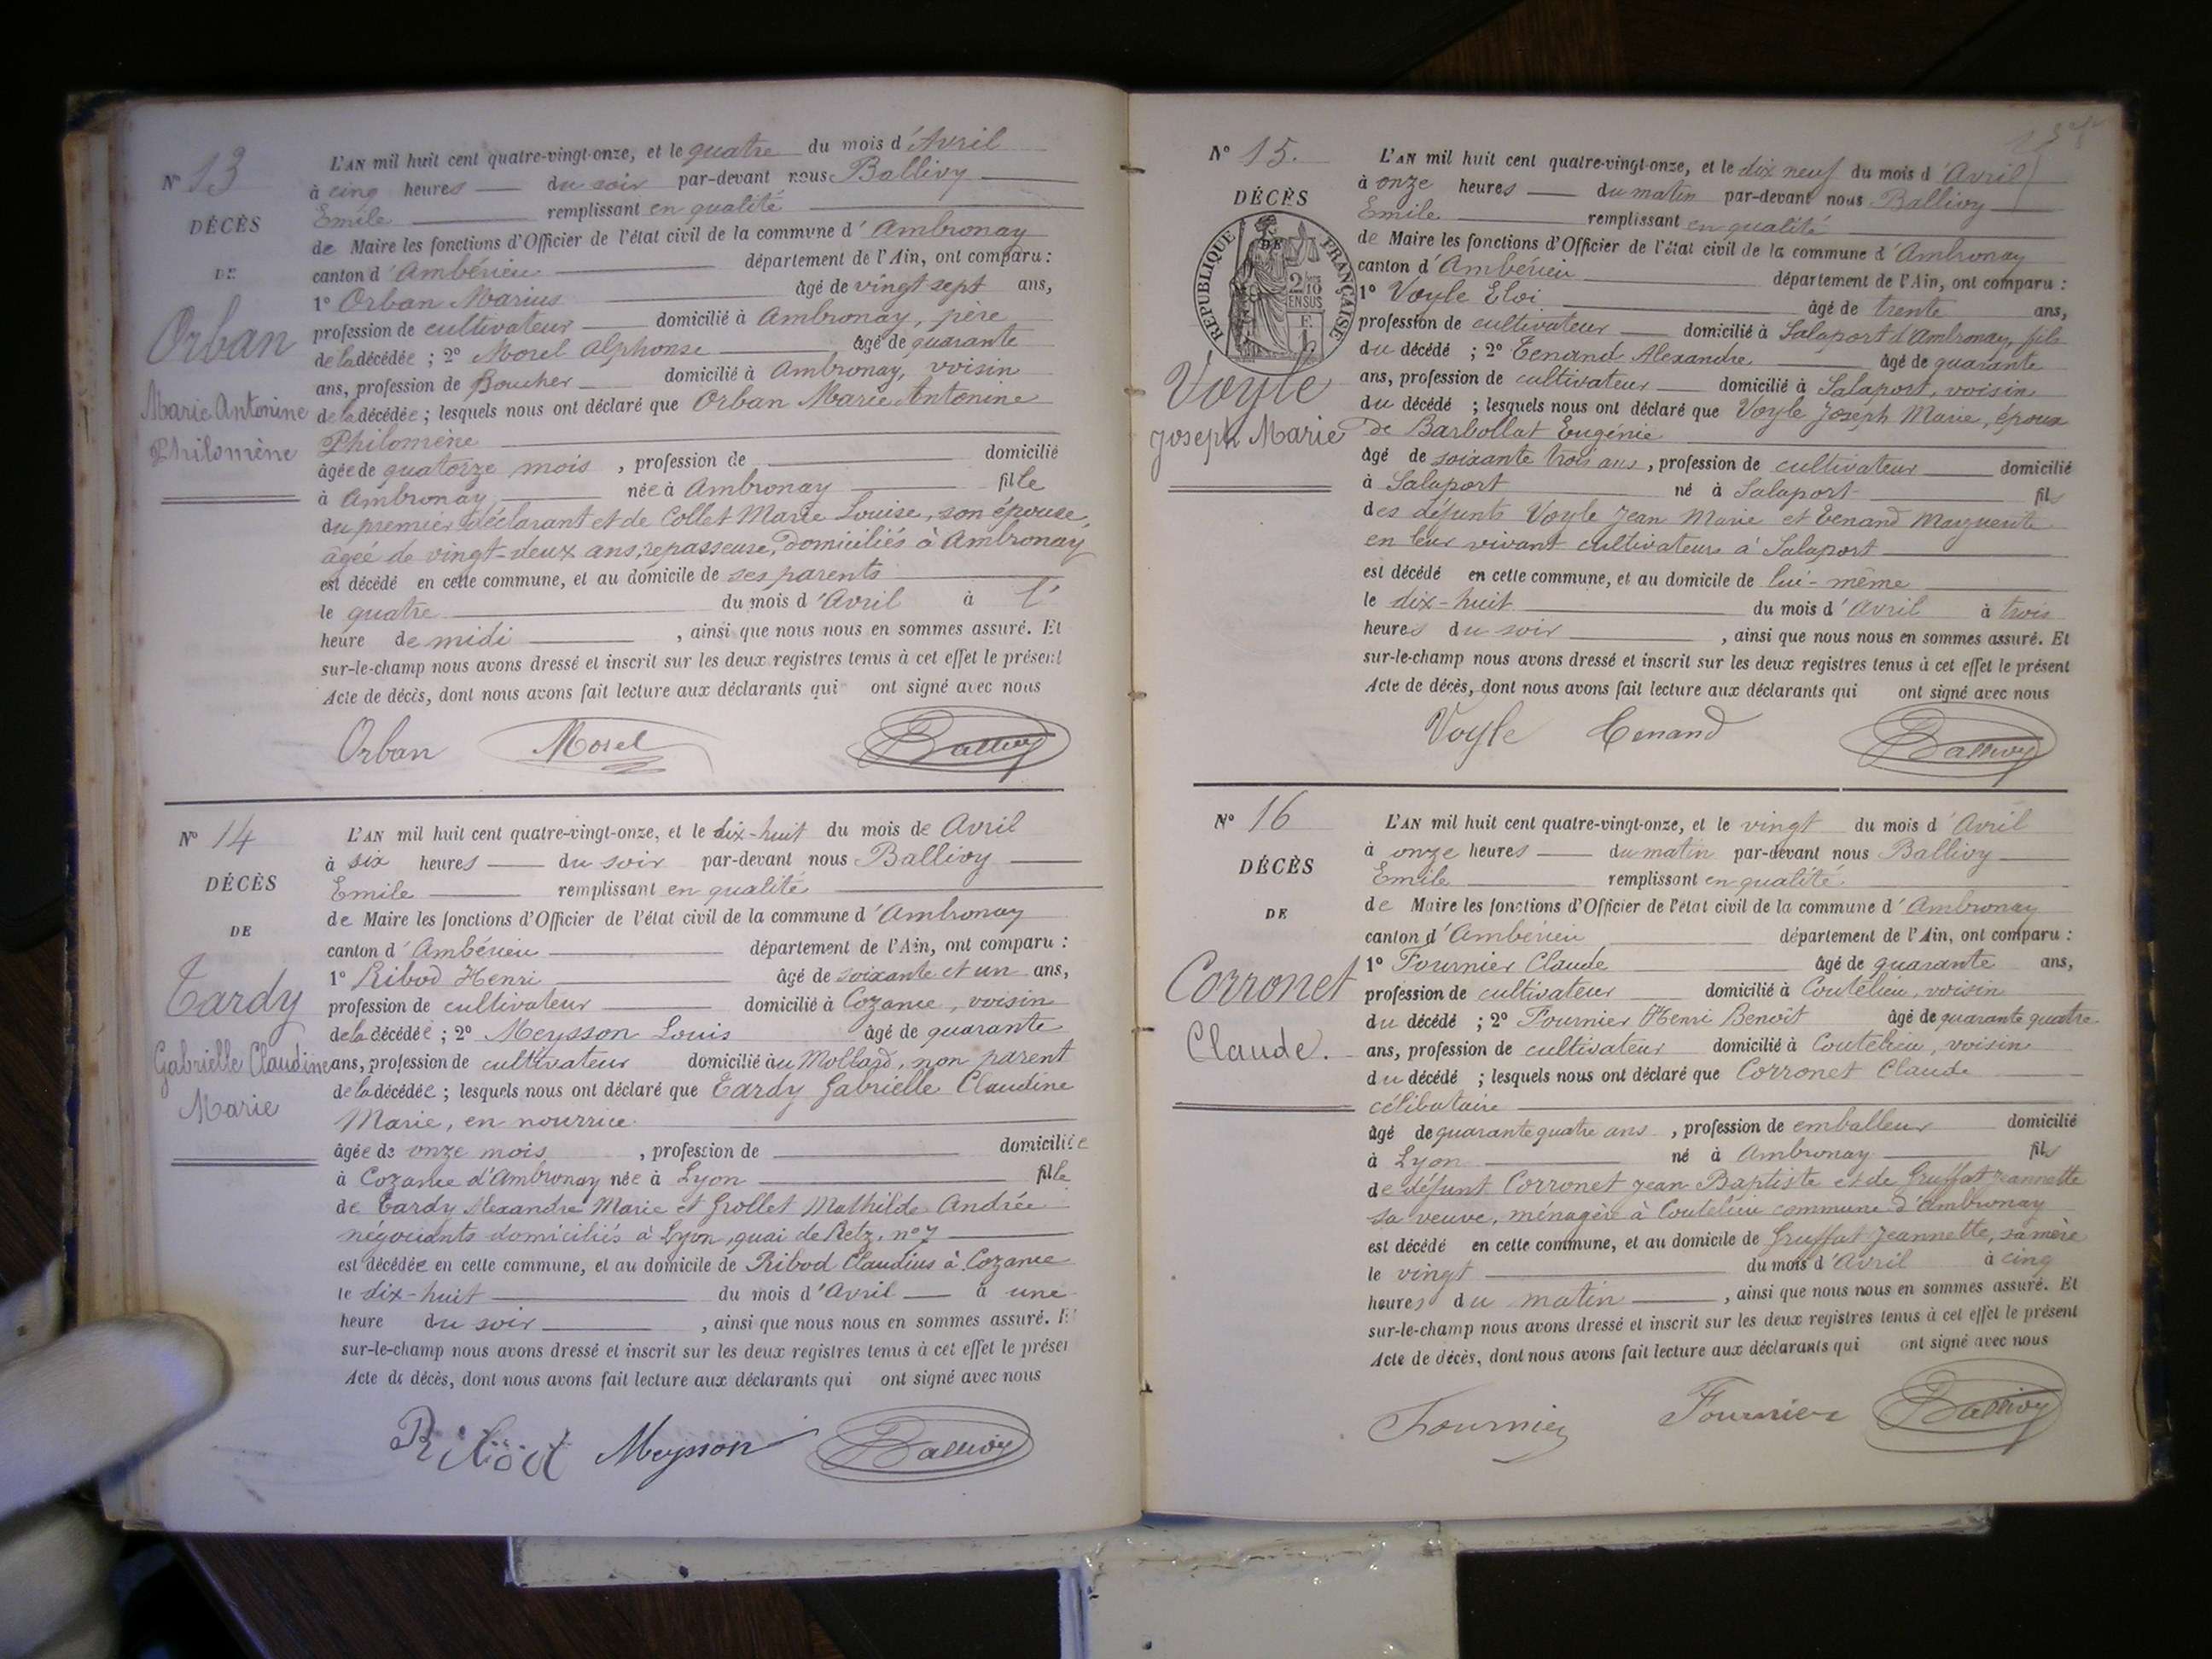 N° 13
DÉCÈS
DE
Orban
Marie Antonine
Philomène
L'AN mil huit cent quatre-vingt-onze, et le quatre du mois d'Avril
à cinq heures du soir par-devant nous Ballivy
Emile remplissant en qualité
de Maire les fonctions d'Officier de l'état civil de la commune d'Ambronay
canton d'Ambérieu département de l'Ain, ont comparu :
1° Orban Marius âgé de vingt sept ans,
profession de cultivateur domicilié à Ambronay, père
de la décédée ; 2° Morel Alphonse âgé de quarante
ans, profession de Boucher domicilié à Ambronay, voisin
de la décédée ; lesquels nous ont déclaré que Orban Marie Antonine
Philomène
âgée de quatorze mois , profession de domicilié
à Ambronay née à Ambronay fille
du premier déclarant et de Collet Marie Louise, son épouse,
âgée de vingt-deux ans, repasseuse, domiciliés à Ambronay
est décédé en cette commune, et au domicile de ses parents
le quatre du mois d'Avril à l'
heure de midi , ainsi que nous nous en sommes assuré. Et
sur-le-champ nous avons dressé et inscrit sur les deux registres tenus à cet effet le présent
Acte de décès, dont nous avons fait lecture aux déclarants qui ont signé avec nous
Orban Morel Ballivy
N° 14
DÉCÈS
DE
Tardy
Gabrielle Claudine
Marie
L'AN mil huit cent quatre-vingt-onze, et le dix-huit du mois de Avril
à six heures du soir par-devant nous Ballivy
Emile remplissant en qualité
de Maire les fonctions d'Officier de l'état civil de la commune d'Ambronay
canton d'Ambérieu département de l'Ain, ont comparu :
1° Ribod Henri âgé de soixante et un ans,
profession de cultivateur domicilié à Cozance, voisin
de la décédée ; 2° Meysson Louis âgé de quarante
ans, profession de cultivateur domicilié au Mollard, non parent
de la décédée ; lesquels nous ont déclaré que Tardy Gabrielle Claudine
Marie, en nourrice
âgée de onze mois , profession de domiciliée
à Cozance d'Ambronay née à Lyon fille
de Tardy Alexandre Marie et Grollet Mathilde Andrée
négociants domiciliés à Lyon, quai de Retz, n° 7
est décédée en cette commune, et au domicile de Ribod Claudius à Cozance
le dix-huit du mois d'Avril à une
heure du soir , ainsi que nous nous en sommes assuré. Et
sur-le-champ nous avons dressé et inscrit sur les deux registres tenus à cet effet le présen
Acte de décès, dont nous avons fait lecture aux déclarants qui ont signé avec nous
Ribod Meysson Ballivy
N° 15.
DÉCÈS
DE
RÉPUBLIQUE FRANÇAISE
2/10 EN SUS
Voyle
Joseph Marie
L'AN mil huit cent quatre-vingt-onze, et le dix neuf du mois d'Avril
à onze heures du matin par-devant nous Ballivy
Emile remplissant en qualité
de Maire les fonctions d'Officier de l'état civil de la commune d'Ambronay
canton d'Ambérieu département de l'Ain, ont comparu :
1° Voyle Eloi âgé de trente ans,
profession de cultivateur domicilié à Salaport d'Ambronay, fils
du décédé ; 2° Tenand Alexandre âgé de quarante
ans, profession de cultivateur domicilié à Salaport, voisin
du décédé ; lesquels nous ont déclaré que Voyle Joseph Marie, époux
de Barbollat Eugénie
âgé de soixante trois ans , profession de cultivateur domicilié
à Salaport né à Salaport fils
des défunts Voyle Jean Marie et Tenand Marguerite
en leur vivant cultivateurs à Salaport
est décédé en cette commune, et au domicile de lui-même
le dix-huit du mois d'Avril à trois
heures du soir , ainsi que nous nous en sommes assuré. Et
sur-le-champ nous avons dressé et inscrit sur les deux registres tenus à cet effet le présent
Acte de décès, dont nous avons fait lecture aux déclarants qui ont signé avec nous
Voyle Tenand Ballivy
N° 16
DÉCÈS
DE
Corronet
Claude.
L'AN mil huit cent quatre-vingt-onze, et le vingt du mois d'Avril
à onze heures du matin par-devant nous Ballivy
Emile remplissant en qualité
de Maire les fonctions d'Officier de l'état civil de la commune d'Ambronay
canton d'Ambérieu département de l'Ain, ont comparu :
1° Fournier Claude âgé de quarante ans,
profession de cultivateur domicilié à Coutelieu, voisin
du décédé ; 2° Fournier Henri Benoît âgé de quarante quatre
ans, profession de cultivateur domicilié à Coutelieu, voisin
du décédé ; lesquels nous ont déclaré que Corronet Claude
célibataire
âgé de quarante quatre ans , profession de emballeur domicilié
à Lyon né à Ambronay fils
de défunt Corronet Jean Baptiste et de Gruffat Jeannette
sa veuve, ménagère à Coutelieu commune d'Ambronay
est décédé en cette commune, et au domicile de Gruffat Jeannette, sa mère
le vingt du mois d'Avril à cinq
heures du matin , ainsi que nous nous en sommes assuré. Et
sur-le-champ nous avons dressé et inscrit sur les deux registres tenus à cet effet le présent
Acte de décès, dont nous avons fait lecture aux déclarants qui ont signé avec nous
Fournier Fournier Ballivy